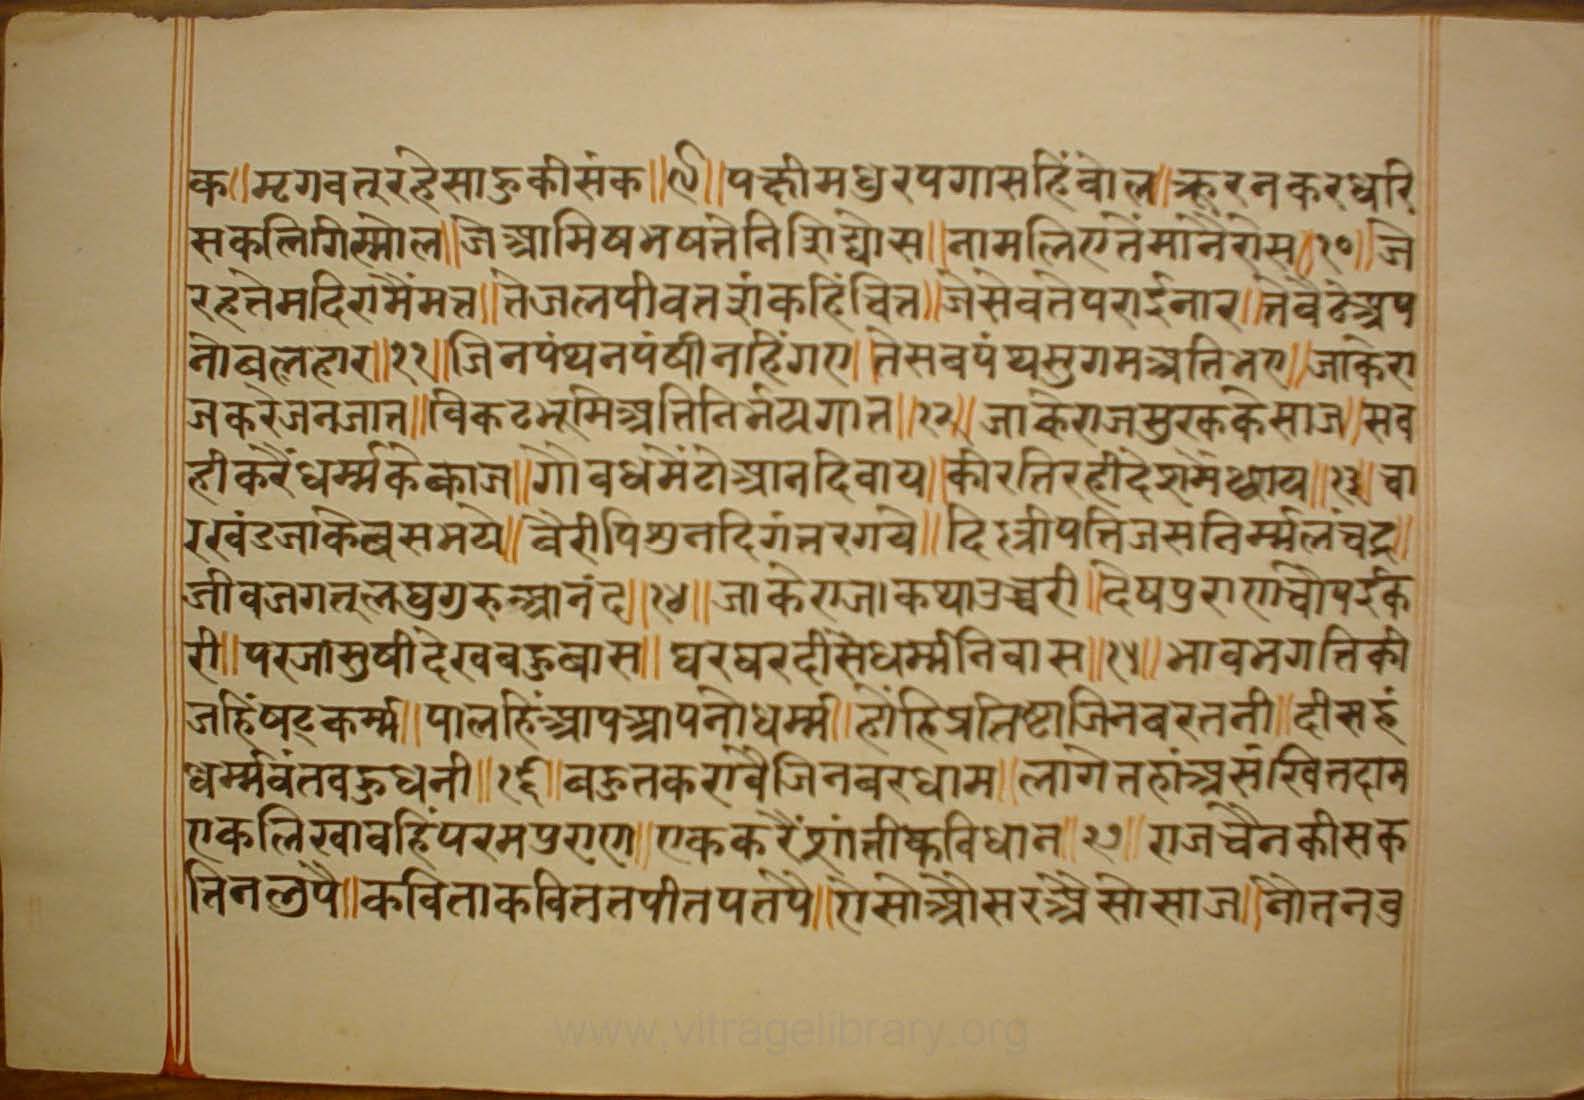 क॥मृगवतूरहेसाहुकीसंक॥९॥पक्षीमधुरपगासहिंबोल॥क्रूरनकरधरि
सकलिगिल्मोल॥जेआमिषभषतेनिशिद्योस॥नामलिएतेंमानैंरोस॥१०॥जे
रहतेमदिरामैंमत्त॥तेजलपीवतशंकहिंचित्त॥जेसेवतेपराईनार॥तेवैठेअप
नोबलहार॥११॥जिनपंथनपंषीनहिंगए॥तेसबपंथसुगमअतिभए॥जाकेरा
जकरेजनजात॥विकटभूमिअतिनिर्भयगात॥१२॥जाकेराजमुरककेसाज॥सब
हीकरैंधर्म्मकेकाज॥गौवधमेंटोआनदिवाय॥कीरतिरहीदेशमैंछाय॥१३॥चा
रखंडजाकेबसभये॥वैरीपिशुनदिगंतरगये॥दिल्लीपतिजसनिर्म्मलचंद्र॥
जीवजगतूलघुगुरुआनंद॥१४॥जाकेराजाकथाउच्चरी॥देषपुराणचौपईक
री॥परजासुषीदेखबहुबास॥घरघरदीसेधर्म्मनिवास॥१५॥भावभगतिकी
जहिंषट्कर्म्म॥पालहिंआपआपनोधर्म्म॥होंहिप्रतिष्टाजिनबरतनी॥दीसहं
धर्म्मवंतबहुधनी॥१६॥बहुतकरावैजिनबरधाम॥लागेतहांअसंखितदाम
एकलिखावहिंपरमपुराण॥एककरैंशांतीकविधान॥१७॥राजचैनकीसक
तिनलुपै॥कविताकवित्ततपीतपतपै॥ऐसोऔसरअैसोसाज॥नौतनवु
www.vitragelibrary.org